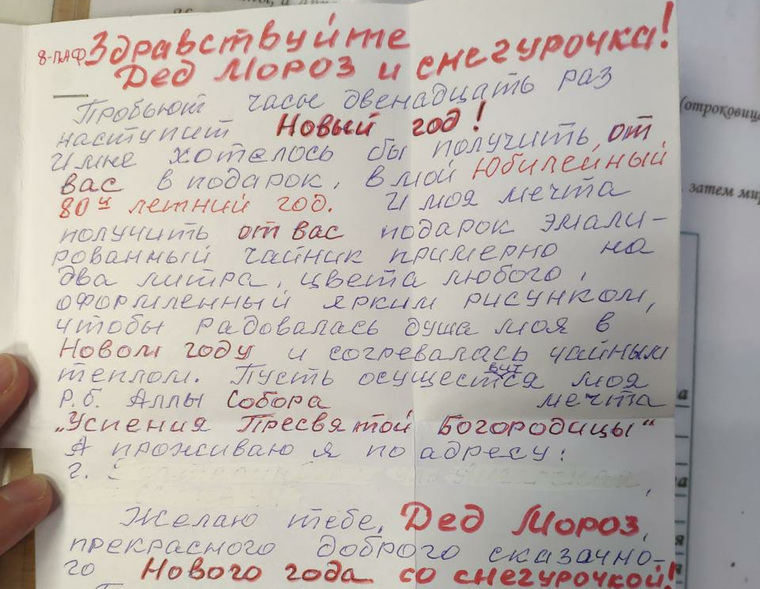 8-ПАФ Здравствуйте
Дед Мороз и снегурочка!
Пробьют часы двенадцать раз
наступит Новый год!
И мне хотелось бы получить, от
вас в подарок, в мой Юбилейный
80й летний год. И моя мечта
получить от вас подарок эмали-
рованный чайник примерно на
два литра, цвета любого,
оформленный ярким рисунком,
чтобы радовалась душа моя в
Новом году и согревалась чайным
теплом. Пусть осуществится моя
Р.б. Аллы Собора мечта
„Успения Пресвятой Богородицы“
А проживаю я по адресу:
г.
Желаю тебе, Дед Мороз,
прекрасного доброго сказачно-
го Нового года со снегурочкой!
(отроковиц
затем ми